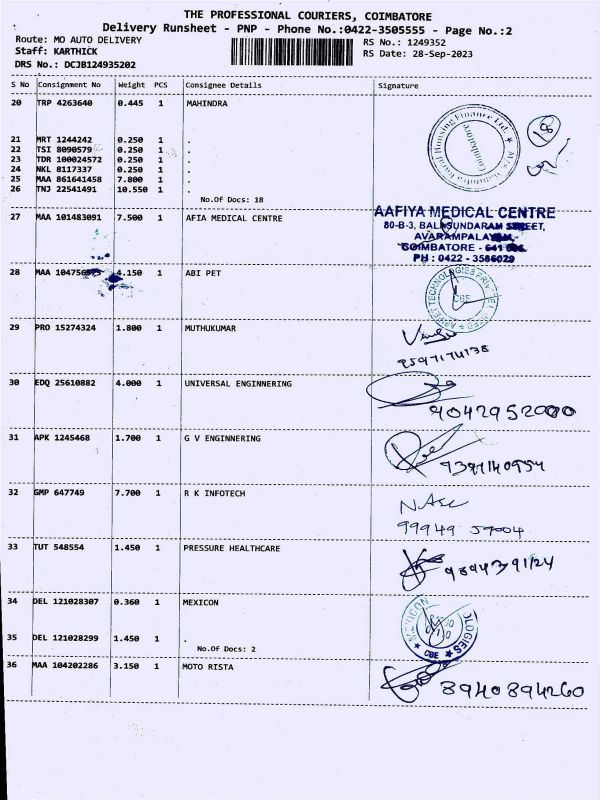 THE PROFESSIONAL COURIERS, COIMBATORE
Delivery Runsheet - PNP - Phone No.:0422-3505555 - Page No.:2
Route: MO AUTO DELIVERY RS No.: 1249352
Staff: KARTHICK RS Date: 28-Sep-2023
DRS No.: DCJB124935202
S No Consignment No Weight PCS Consignee Details Signature
20 TRP 4263640 0.445 1 MAHINDRA
21 MRT 1244242 0.250 1 .
22 TSI 8090579 0.250 1 .
23 TDR 100024572 0.250 1 .
24 NKL 8117337 0.250 1 .
25 MAA 861641458 7.800 1 .
26 TNJ 22541491 10.550 1 .
No.Of Docs: 18
27 MAA 101483091 7.500 1 AFIA MEDICAL CENTRE
AAFIYA MEDICAL CENTRE
80-B-3, BALASUNDARAM STREET,
AVARAMPALAYAM,
COIMBATORE - 641
PH : 0422 - 3586029
28 MAA 4.150 1 ABI PET
CBE
29 PRO 15274324 1.800 1 MUTHUKUMAR
9597174138
30 EDQ 25610882 4.000 1 UNIVERSAL ENGINNERING
31 APK 1245468 1.700 1 G V ENGINNERING
32 GMP 647749 7.700 1 R K INFOTECH
99949 59004
33 TUT 548554 1.450 1 PRESSURE HEALTHCARE
34 DEL 121028307 0.360 1 MEXICON
MEXICON
CBE
35 DEL 121028299 1.450 1 .
No.Of Docs: 2
36 MAA 104202286 3.150 1 MOTO RISTA
8940894260